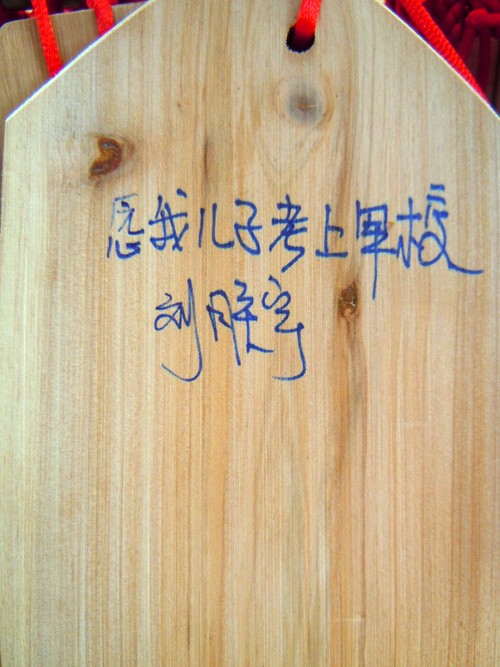 愿我儿子考上军校
刘胜宇